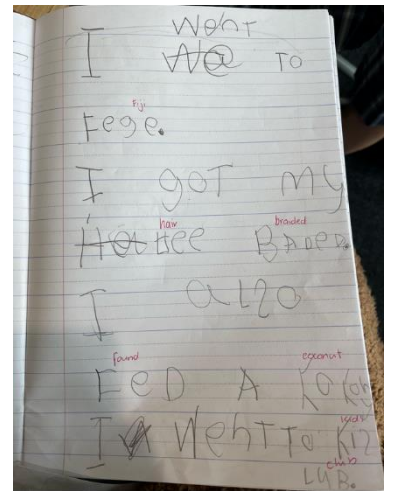 went
I to
Fiji
Fege.
I got my
hair braided
Hee BADeD.
I alzo
found coconut
FeD A KoKoN
kids
I WehT To Kiz
club
LUB.